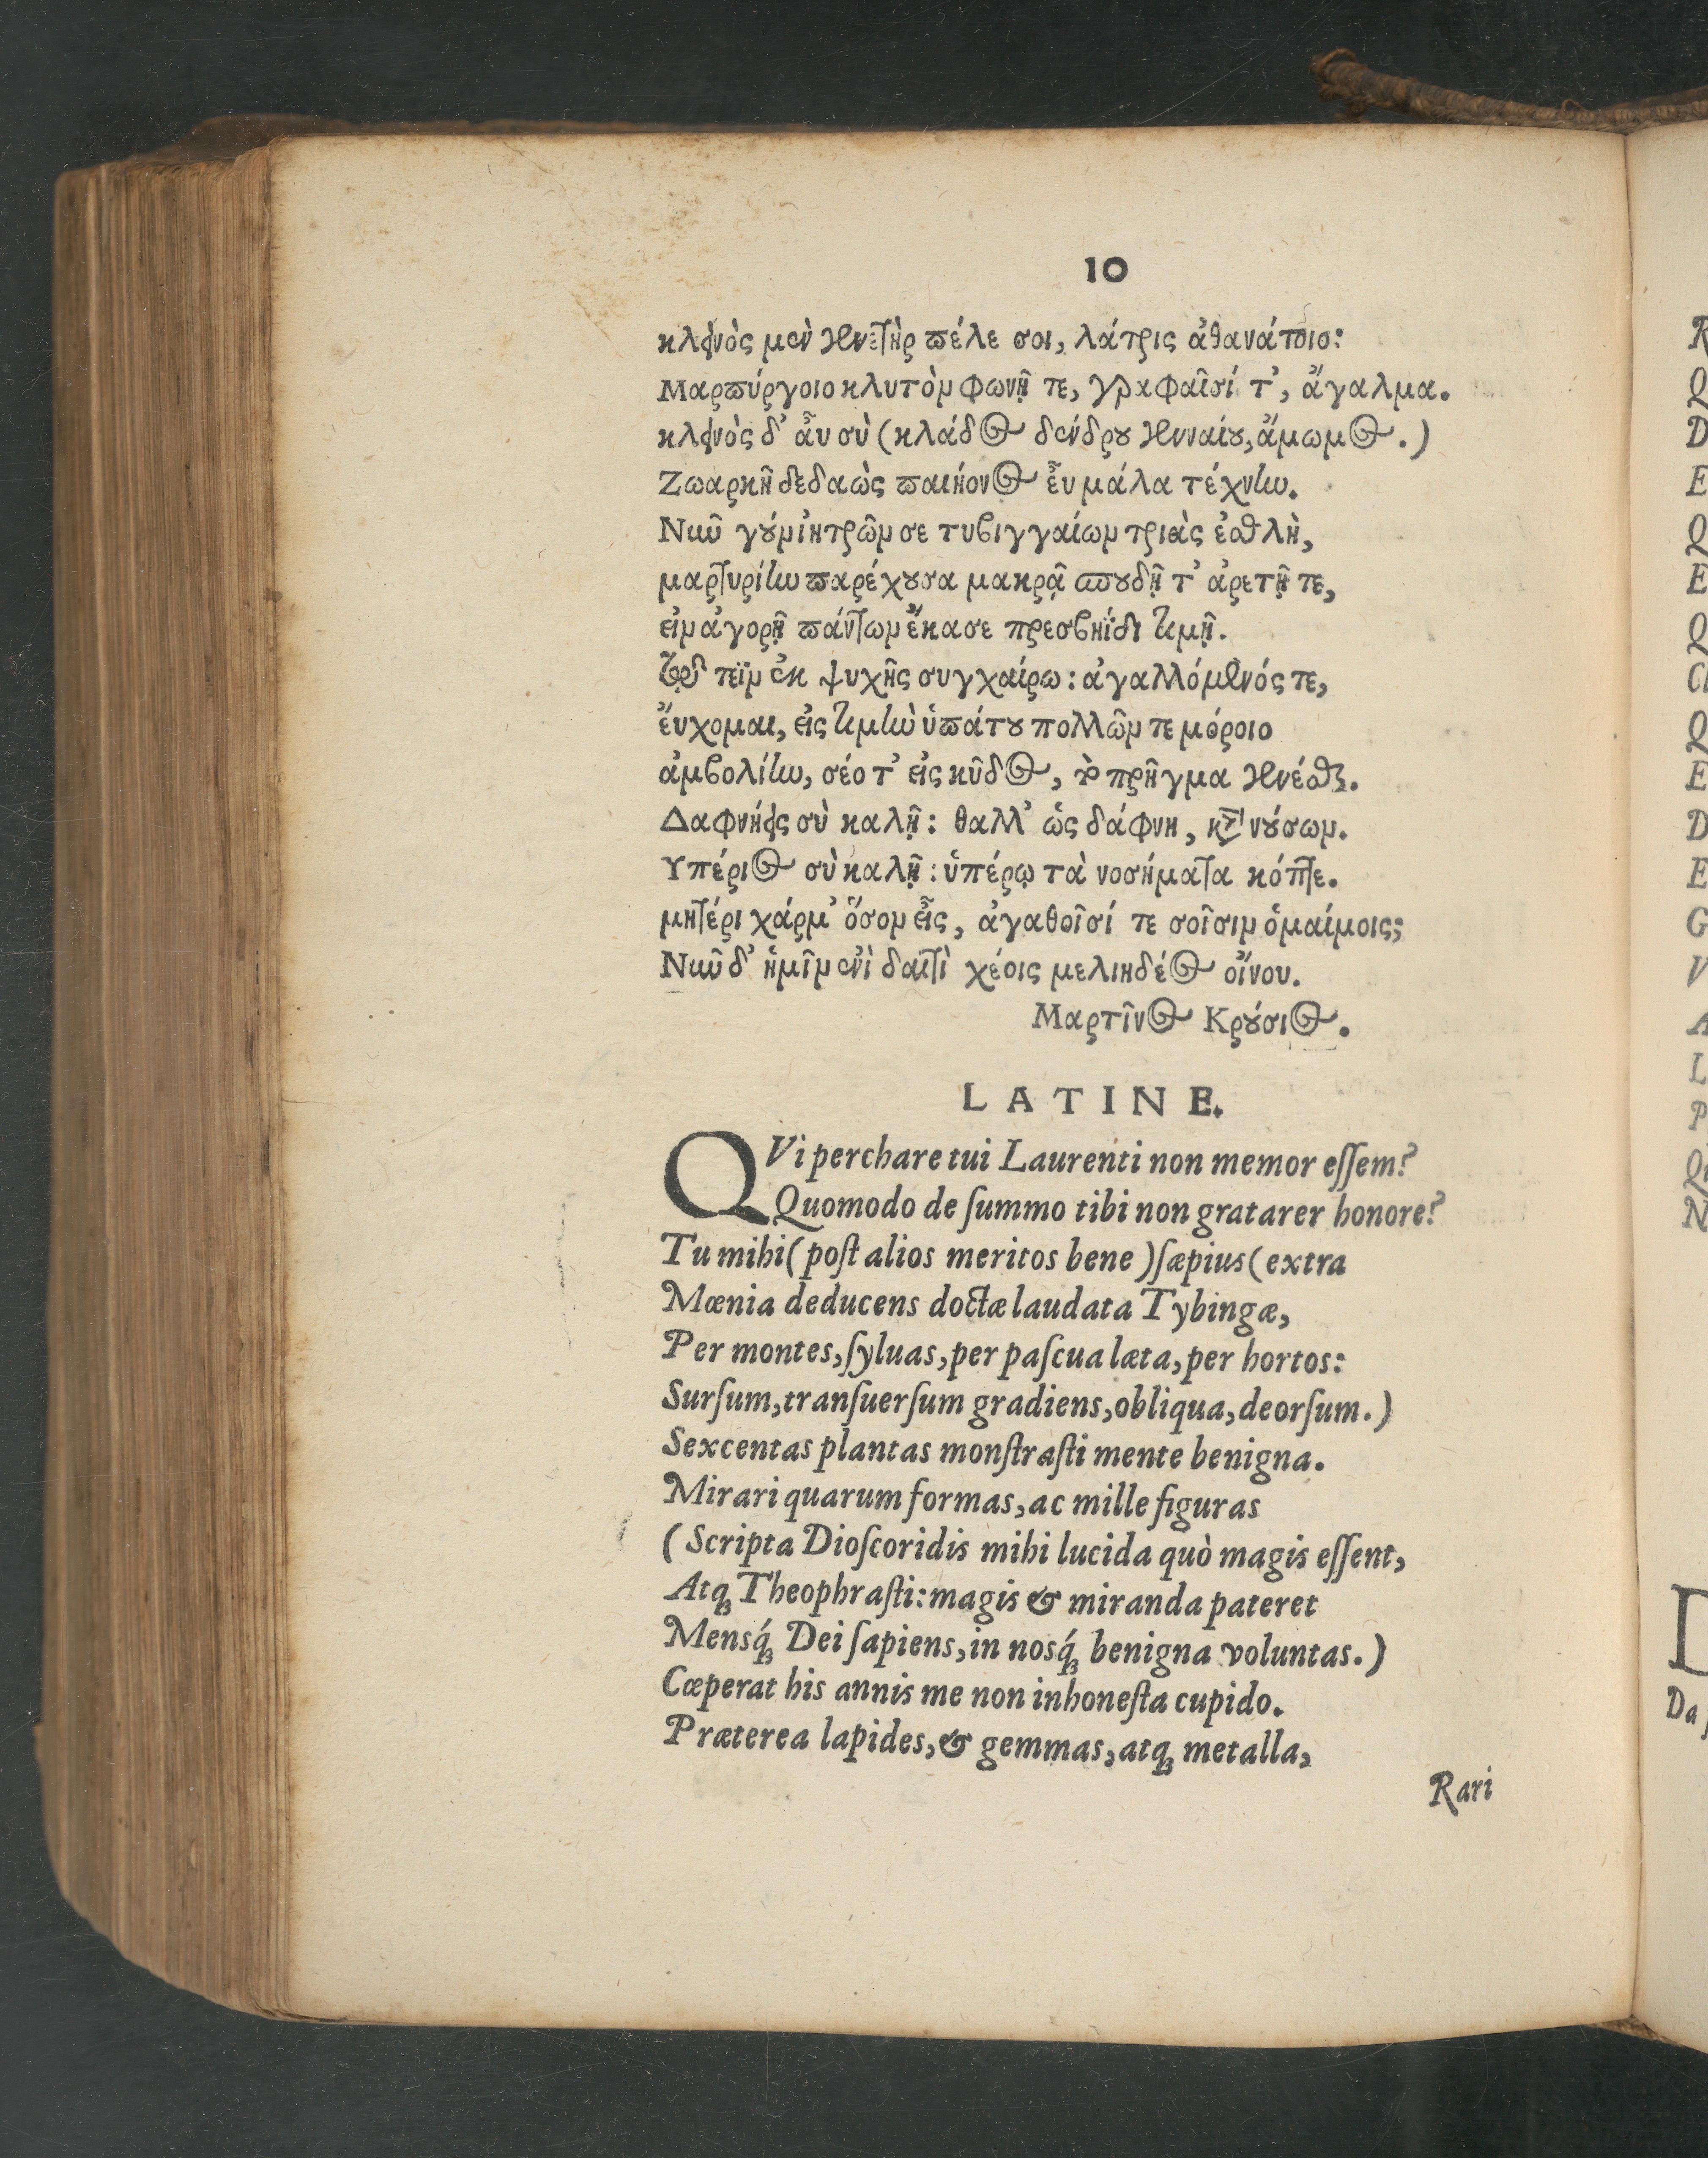 10
κλεινὸς μὲν γενετὴρ πέλε σοι, λάτρις ἀθανάτοιο:
Μαρπύργοιο κλυτὸν φωνῇ τε, γραφαῖσί τ', ἄγαλμα.
κλεινὸς δ' αὖ σὺ (κλάδος δένδρου γενναίου, ἄμωμος.)
Ζωαρκῆ δεδαὼς παιήονος εὖ μάλα τέχνην.
Νῦν γοῦν ἰητρῶν σε τυβιγγαίων τριὰς ἐσθλὴ,
μαρτυρίην παρέχουσα μακρᾷ σπουδῇ τ' ἀρετῇ τε,
εἰν ἀγορῇ πάντων ἔκασε πρεσβηΐδι τιμῇ.
τεῒν ἐκ ψυχῆς συγχαίρω: ἀγαλλόμενός τε,
ἔυχομαι, εἰς τιμὴν ὑπάτου πολλῶν τε μόροιο
ἀμβολίην, σέο τ' εἰς κῦδος, τὸ πρῆγμα γενέσθαι.
Δαφνήεις σὺ καλῇ: θαλλ' ὡς δάφνη, νούσων.
Υπέριος σὺ καλῇ: ὑπέρῳ τὰ νοσήματα κόπτε.
μητέρι χάρμ' ὅσον εἶς, ἀγαθοῖσί τε σοῖσιν ὁμαίμοις;
Νῦν δ' ἡμῖν ἐνὶ δαιτὶ χέοις μελιηδέος οἴνου.
Μαρτῖνος Κρούσιος.
LATINE.
QVi perchare tui Laurenti non memor eſſem?
Quomodo de ſummo tibi non gratarer honore?
Tu mihi (poſt alios meritos bene) ſæpius (extra
Mœnia deducens doctæ laudata Tybingæ,
Per montes, ſyluas, per paſcua læta, per hortos:
Surſum, tranſuerſum gradiens, obliqua, deorſum.)
Sexcentas plantas monſtraſti mente benigna.
Mirari quarum formas, ac mille figuras
(Scripta Dioſcoridis mihi lucida quò magis eſſent,
Atq́ Theophraſti: magis & miranda pateret
Mensq́ Dei ſapiens, in nosq́ benigna voluntas.)
Cœperat his annis me non inhoneſta cupido.
Præterea lapides, & gemmas, atq́ metalla,
Rari